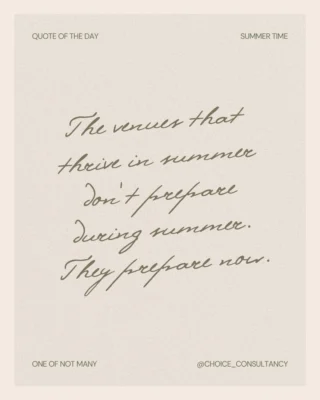 QUOTE OF THE DAY
SUMMER TIME
The venues that
thrive in summer
don't prepare
during summer.
They prepare now.
ONE OF NOT MANY
@CHOICE_CONSULTANCY